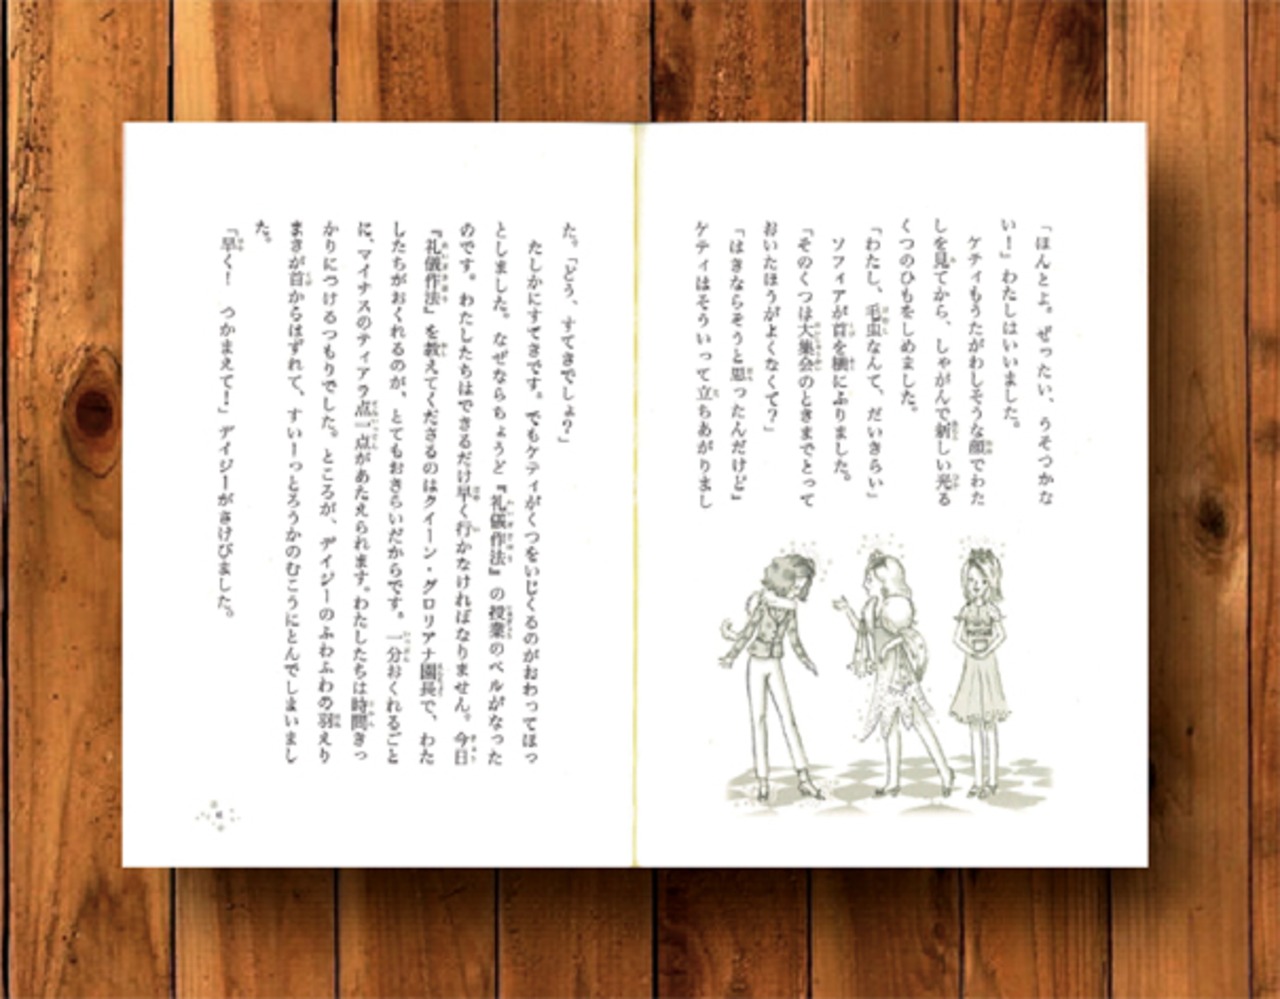 「ほんとよ。ぜったい、うそつかな
い！」わたしはいいました。
ケティもうたがわしそうな顔でわた
しを見てから、しゃがんで新しい光る
くつのひもをしめました。
「わたし、毛虫なんて、だいきらい」
ソフィアが首を横にふりました。
「そのくつは大集会のときまでとって
おいたほうがよくなくて？」
「はきならそうと思ったんだけど」
ケティはそういって立ちあがりまし
た。「どう、すてきでしょ？」
たしかにすてきです。でもケティがくつをいじくるのがおわってほっ
としました。なぜならちょうど『礼儀作法』の授業のベルがなった
のです。わたしたちはできるだけ早く行かなければなりません。今日
『礼儀作法』を教えてくださるのはクイーン・グロリアナ園長で、わた
したちがおくれるのが、とてもおきらいだからです。一分おくれるごと
に、マイナスのティアラ点一点があたえられます。わたしたちは時間きっ
かりにつけるつもりでした。ところが、デイジーのふわふわの羽えり
まきが首からはずれて、すいーっとろうかのむこうにとんでしまいまし
た。
「早く！　つかまえて！」デイジーがさけびました。